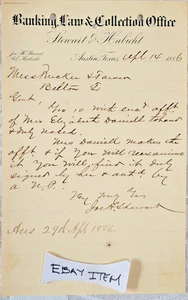 Banking, Law & Collection Office
Stewart & Habicht
Austin, Texas, Sept 14 1886
Mess Rucker &
Belton T
Gent,
Yo 10 with end afft
of Mrs Elizabeth Daniell
& duly noted.
Mrs Daniell makes the
afft & if you will reexamine
it you will find it duly
signed by her & by
a N.P.
Yrs truly
Stewart
Ans 29th Sept 1886.
EBAY ITEM